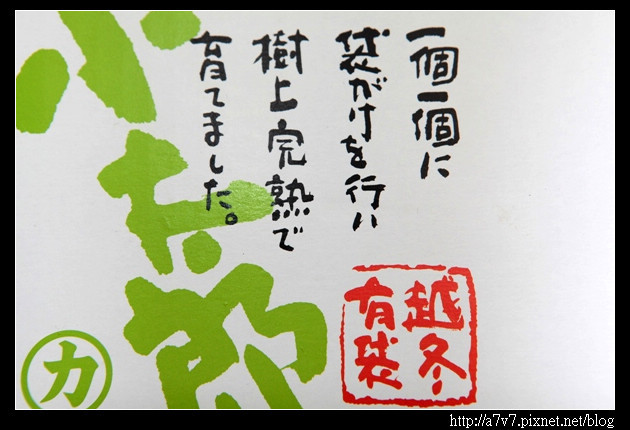 一個一個に
袋がけを行い
樹上完熟で
育てました。
越冬
有袋
小太郎
カ
http://a7v7.pixnet.net/blog